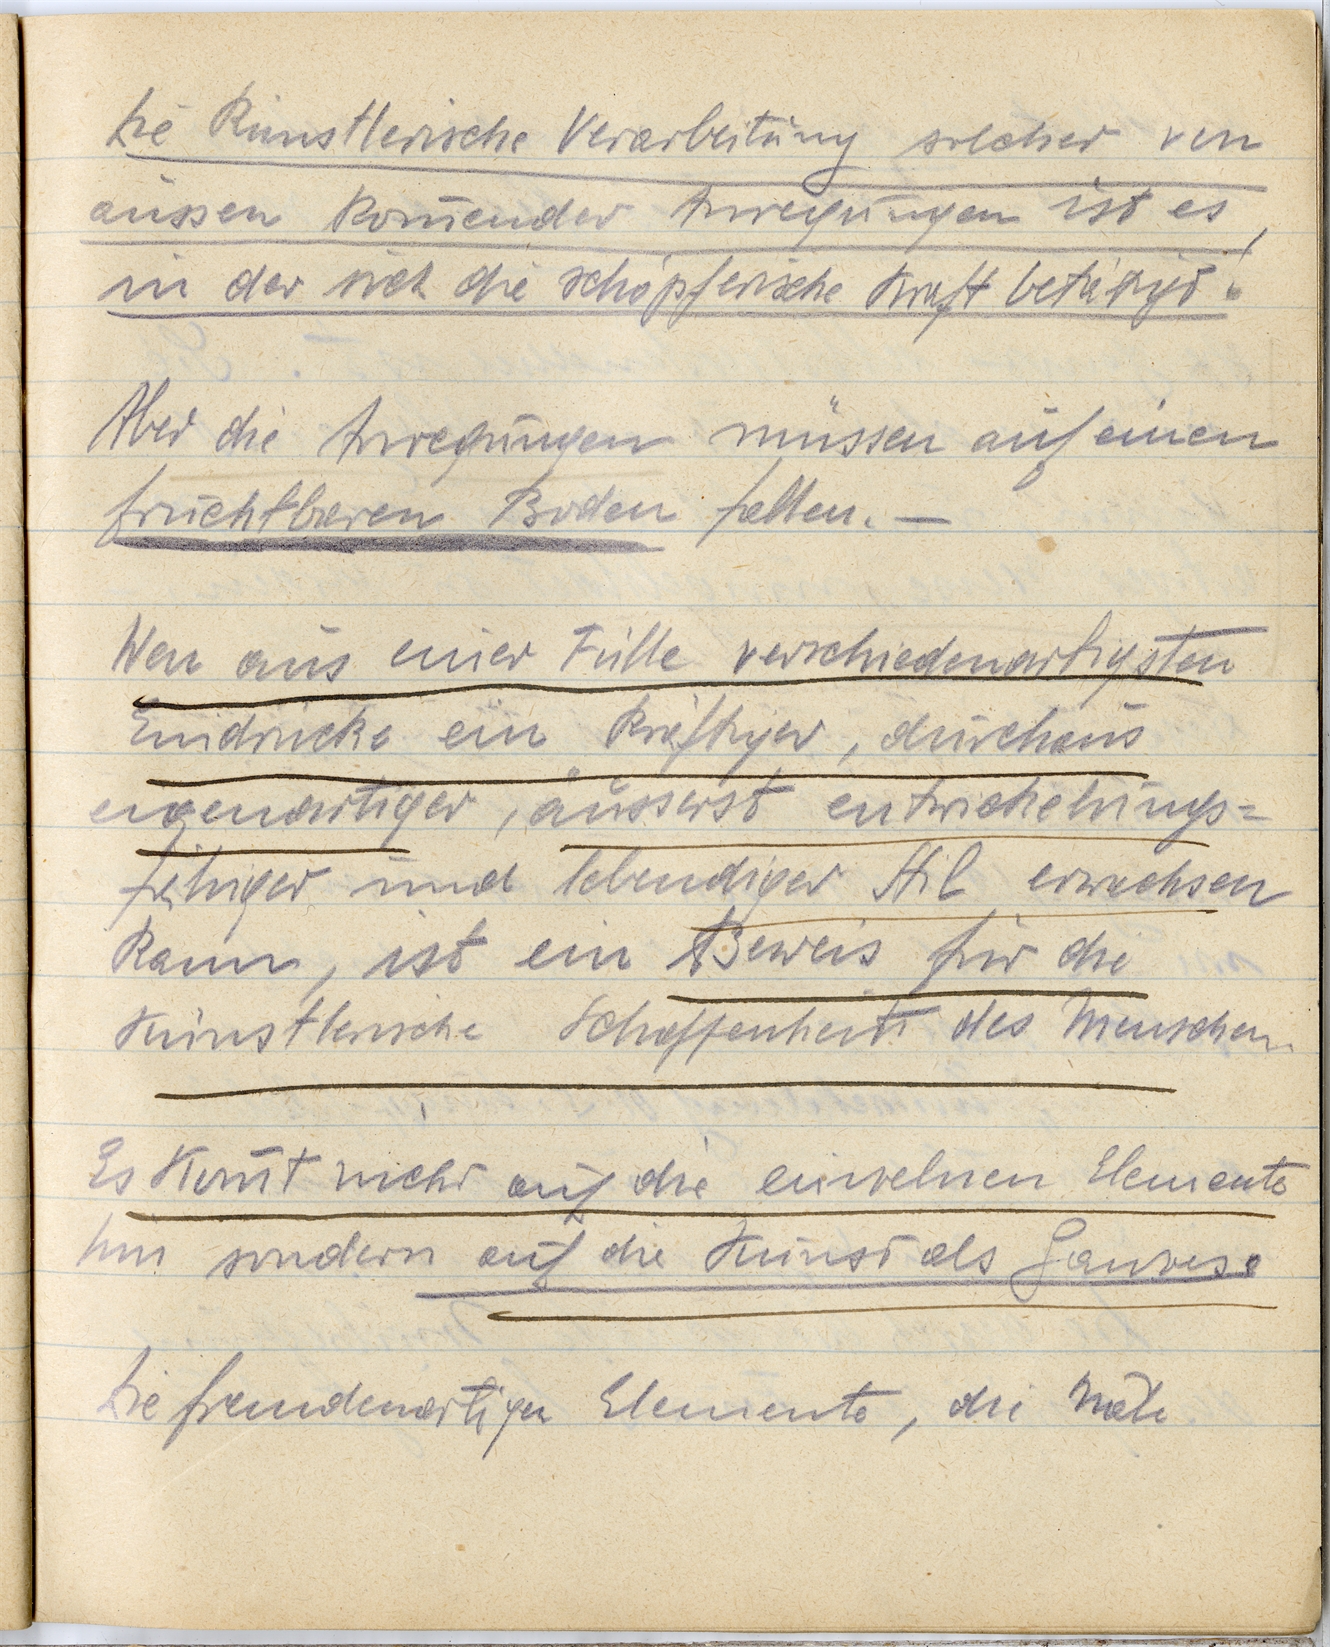 Die Künstlerische Verarbeitung solcher von
aussen kom̄ender Anregungen ist es,
in der sich die schöpferische Kraft betätigt.
Aber die Anregungen müssen auf einen
fruchtbaren Boden fallen. —
Wen aus einer Fülle verschiedenartigsten
Eindrücke ein kräftiger, durchaus
eigenartiger, äusserst entwickelungs=
fähiger und lebendiger Stil erwachsen
kann, ist ein Beweis für die
Künstlerische Schaffenheit des Menschen.
Es kom̄t nicht auf die einzelnen Elemente
hin sondern auf die Kunst als Ganzes.
Die fremdenartigen Elemente, die